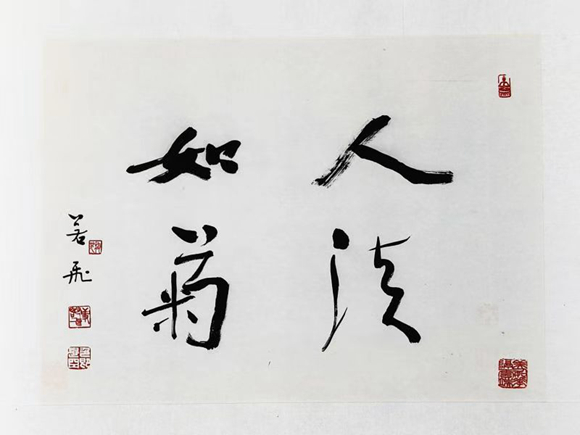 人淡
如菊
若飛